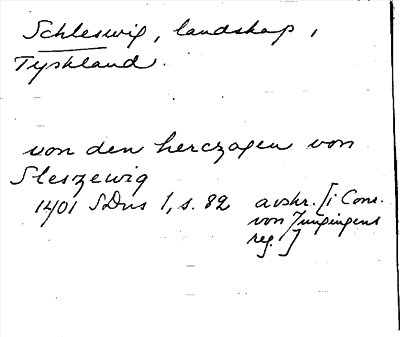 Schleswig, landskap,
Tyskland.
von den herczogen von
Sleszewig
1401 SDns 1, s. 82 avskr. [i Conr.
von Jungingens
reg.]